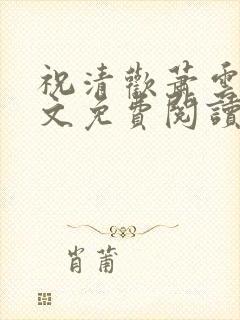 祝清歡蕭雲
文免費閱讀
肖莆